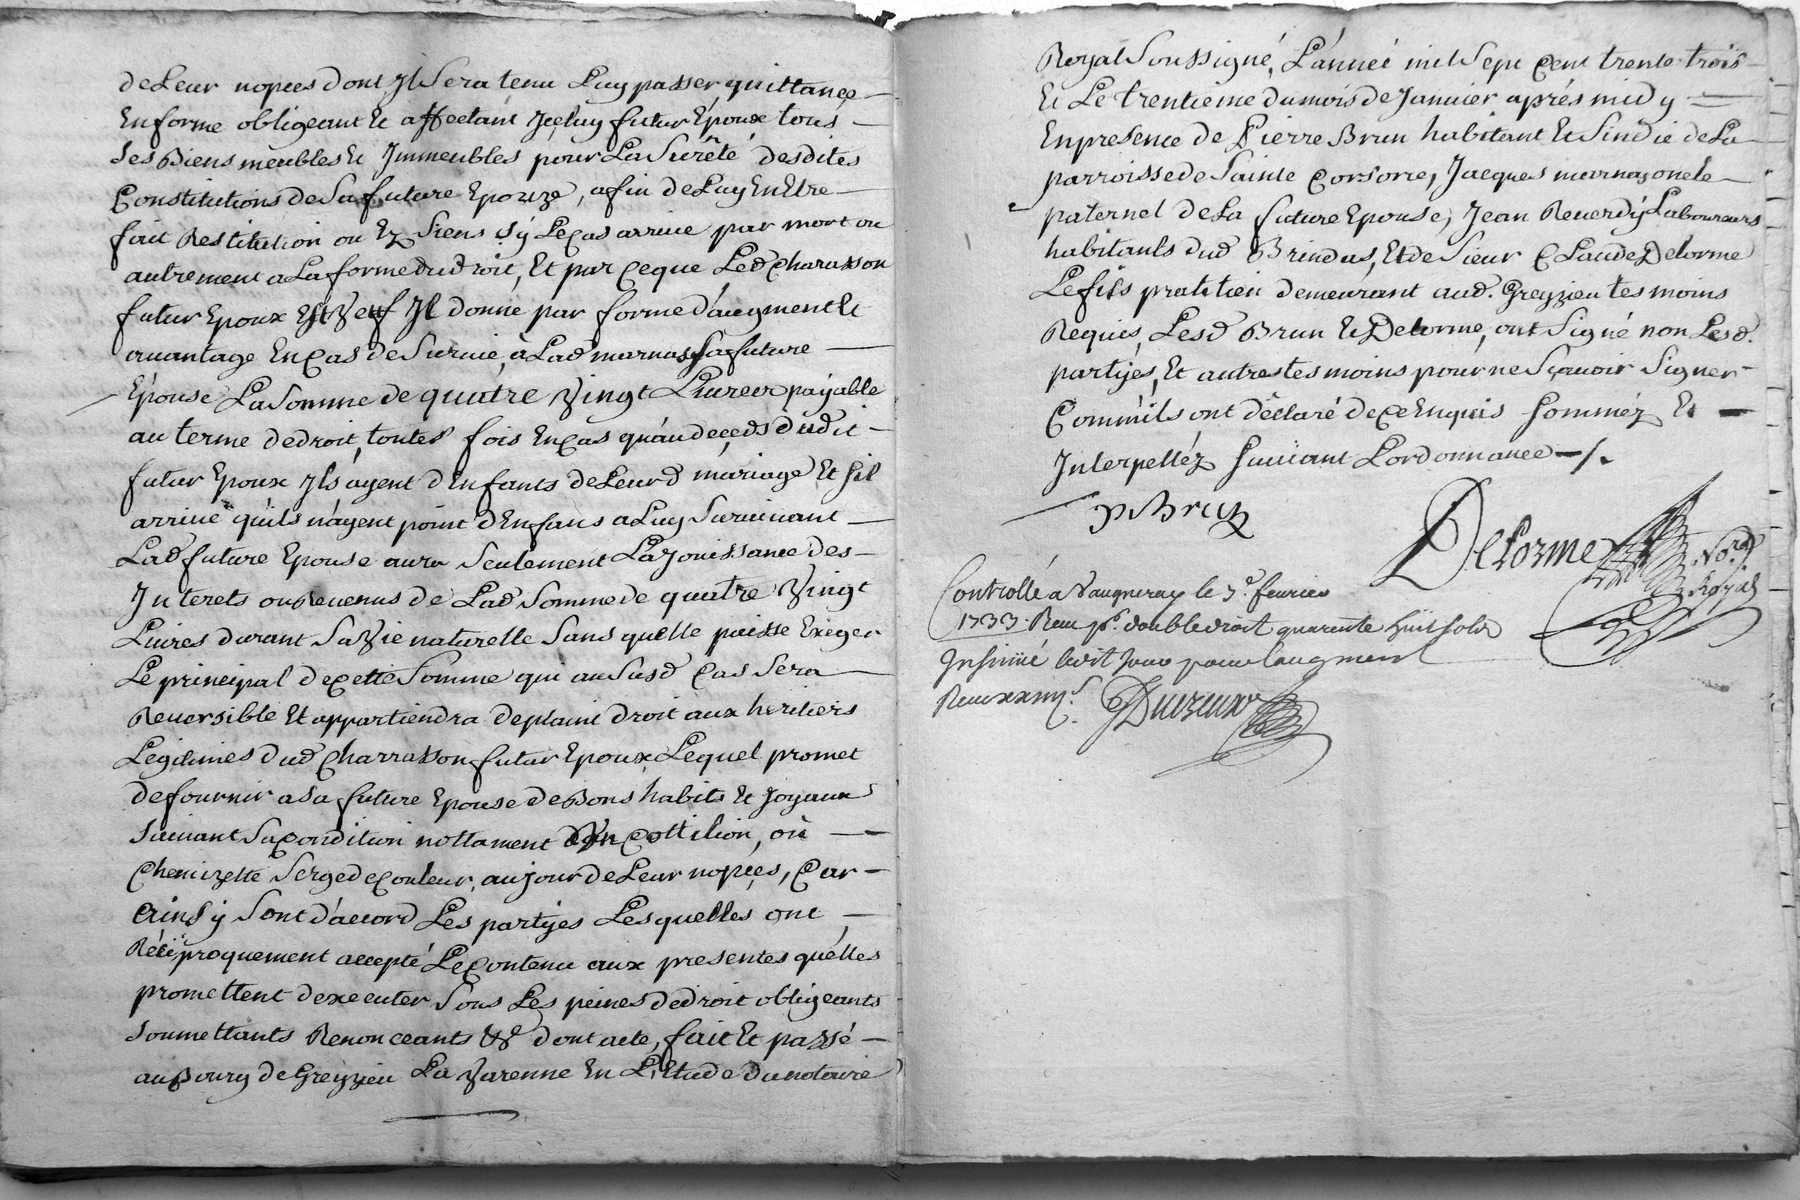 de Leur nopces dont Jl Sera tenu Luy passer quittance
En forme obligeant Et affectant Jceluy futur Epoux tous
Ses Biens meubles Et Jmmeubles pour La Surêté desdites
Constitutions de Sa future Epouze, afin de Luy En Etre
fait Restitution ou Ez Siens Sÿ Le cas arrive par mort ou
autrement a La forme du droit, Et par ce que Led Charasson
futur Epoux Est Veuf Jl donne par forme d'augment Et
avantage En cas de Survie, a Lad marnas Sa future
Epouse La Somme de quatre Vingt Livres payable
au terme de droit, toutes fois En cas qu'au deceds dudit
futur Epoux Jls ayent d'Enfants de Leurd mariage Et Sil
arrive qu'ils n'ayent point d'Enfans a Luy Survivant
Lad future Epouse aura Seulement La Jouissance des
Jnterets ou Revenus de Lad Somme de quatre Vingt
Livres durant Sa Vie naturelle Sans qu'elle puisse Exiger
Le principal de cette Somme qui au Susd cas Sera
Reversible Et appartiendra de plaint droit aux heritiers
Legitimes dud Charrasson futur Epoux, Lequel promet
de fournir a Sa future Epouse de Bons habits Et Joyaux
Suivant Sa condition nottament d'Un Cottilion, où
Chemizette Serge de couleur, au jour de Leur nopces, Car
ainsÿ Sont d'accord Les partyes Lesquelles ont
Réciproquement accepté Le contenu aux presentes qu'elles
promettent d'executer Sous Les peines de droit obligeants
Soumettants Renonceants &c dont acte, fait Et passé
au Bourg de Greyzieu La Varenne En L'Etude du notaire
Royal Soussigné, L'année mil Sept Cent trente trois
Et Le trentieme du mois de Janvier aprés midy
En presence de Pierre Brun habitant Et Sindic de La
parroisse de Sainte Consorce, Jacques marnas oncle
paternel de La future Epouse, Jean Reverdÿ Laboureurs
habitants dud Brindas, Et de Sieur Claude Delorme
Le fils pratitien demeurant aud. Greyzieu tesmoins
Requis, Lesd Brun Et Delorme, ont Signé non Lesd.
partyes, Et autres tesmoins pour ne Sçavoir Signer
Comm'ils ont déclaré de ce Enquis Somméz Et
Jnterpelléz Suivant L'ordonnance
P Brun
Delorme No.re Royal
Controllé a Vaugneray le 3e. fevrier
1733 Receu pr. double droit quarente huit sols
Jnsinué ledit Jour pour laugment
Receu